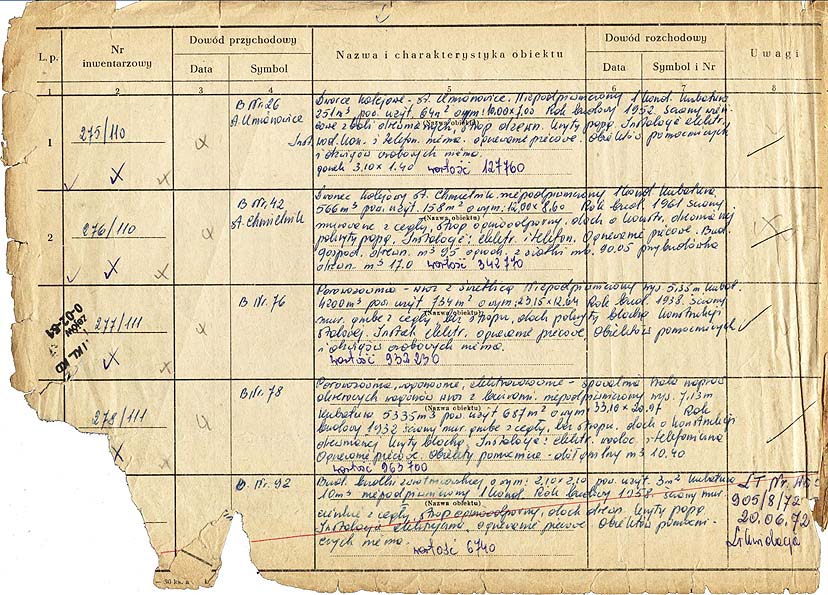 L.p.
Nr inwentarzowy
Dowód przychodowy
Data
Symbol
Nazwa i charakterystyka obiektu
Dowód rozchodowy
Data
Symbol i Nr
Uwagi
1 2 3 4 5 6 7 8
1
275/110
B Nr. 26
st. Umianowice
Dworzec kolejowy - st. Umianowice. Niepodpiwniczony 1 kond. kubatura
251 m³ pow. użyt. 64 m² o wym:
Rok budowy 1952 ściany
(Nazwa obiektu)
strop drewn. kryty papą. Instalacje elektr.
i telefon. niema. ogrzewanie piecowe. Obiektów pomocniczych
i dźwigów osobowych niema.
3,10 x 1.40 wartość 127760
2
276/110
B Nr. 42
st. Chmielnik
Dworzec kolejowy st. Chmielnik niepodpiwniczony 1 kond. kubatura
566 m³ pow. użyt. 158 m² o wym: Rok bud. 1961 ściany
(Nazwa obiektu)
murowane z cegły, strop ognioodporny, dach o konstr. drewnianej
pokryty papą. Instalacje: elektr. i telefon. Ogrzewanie piecowe. Bud.
gospod. drewn. m³ 95 ogrodz. z siatki mb. 90.05 przybudówka
drewn. m³ 17.0 wartość 342770
277/111
B Nr. 76
Parowozownia - wraz z świetlicą Niepodpiwniczony wys. 5,35 m kubat.
4200 m³ pow. użyt 734 m² o wym: Rok bud. 1938. Ściany
(Nazwa obiektu)
mur. grube z cegły, bez stropu, dach pokryty blachą konstrukcji
stalowej. Instal. elektr. ogrzewanie piecowe, Obiektów pomocniczych
i dźwigów osobowych niema.
wartość 932236
278/111
B Nr. 78
Parowozownia, wagonownia, elektrowozownia - spawalnia hala napraw
okresowych wagonów wraz z biurami. niepodpiwniczony wys. 7,13 m
kubatura 5335 m³ pow. użyt 687 m² o wym: 33,10 x 20.97 Rok
(Nazwa obiektu)
budowy 1932 ściany mur. grube z cegły, bez stropu, dach o konstrukcji
drewnianej kryty blachą, Instalacje: elektr. wodoc. i telefoniczna
Ogrzewanie piecowe. Obiekty pomocnicze - dół m³ 10.40
wartość 963700
B. Nr. 92
Bud. o wym: 2,10 x 2,10 pow. użyt. 3 m² kubatura
10 m³ niepodpiwniczony 1 kond. Rok budowy 1958 ściany mur.
(Nazwa obiektu)
z cegły, strop ognioodporny, dach drewn. kryty papą.
Instalacja elektryczna, ogrzewanie piecowe Obiektów pomocni-
czych niema. wartość 6740
LT Nr.
905/8/72
20.06.72
Likwidacja